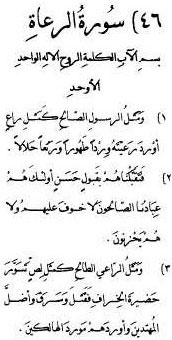 ٤٦) سورة الرعاة
بسم الآب الكلمة الروح الاله الواحد
الأوحد
١) ومثل الرسول الصالح كمثل راع
أورد رعيته وردا طهورا ومرتعا حلالا.
٢) فتقبلناها بقبول حسن أولئك هم
عبادنا الصالحون لا خوف عليهم ولا
هم يحزنون.
٣) ومثل الراعي الطالح كمثل لص تسور
حضيرة الخراف فقتل وسرق وأضل
المهتدين وأوردهم مورد الهالكين.